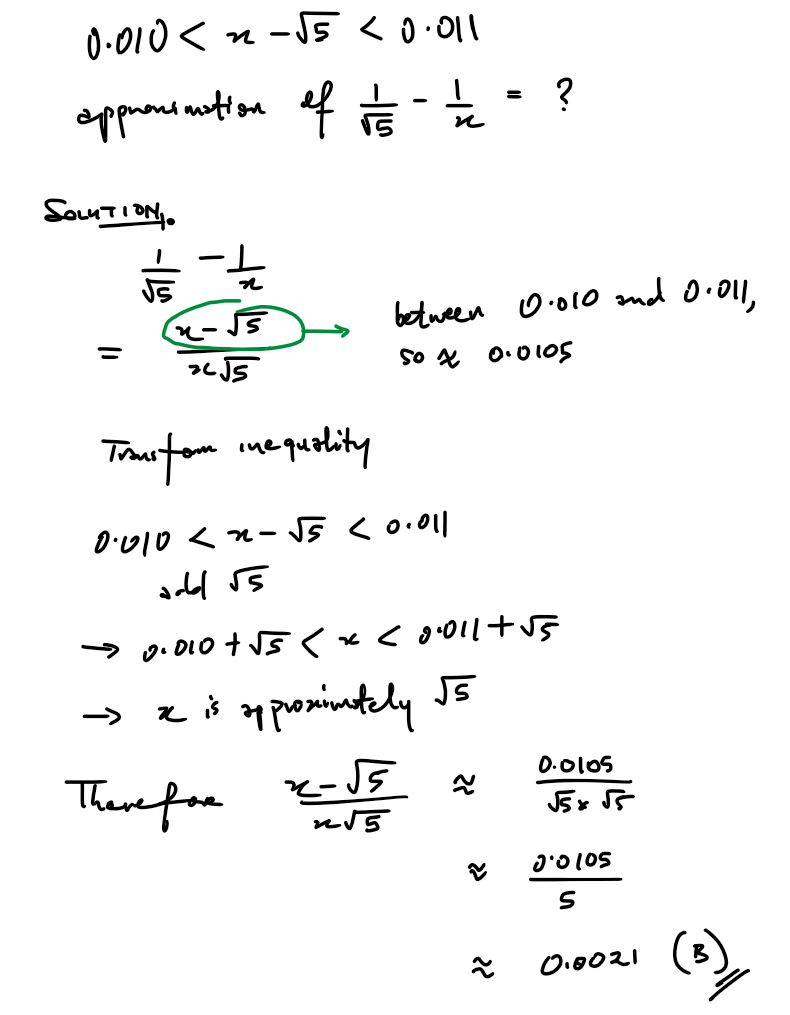 0.010 < x - √5 < 0.011
approximation of 1/√5 - 1/x = ?
SOLUTION.
1/√5 - 1/x
= (x - √5)/(x√5) → between 0.010 and 0.011,
so ≈ 0.0105
Transform inequality
0.010 < x - √5 < 0.011
add √5
→ 0.010 + √5 < x < 0.011 + √5
→ x is approximately √5
Therefore (x - √5)/(x√5) ≈ 0.0105/(√5 × √5)
≈ 0.0105/5
≈ 0.0021 (B)